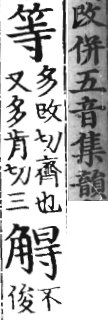 改併五音集韻
等
多改切齊也
又多肯切三
不
俊